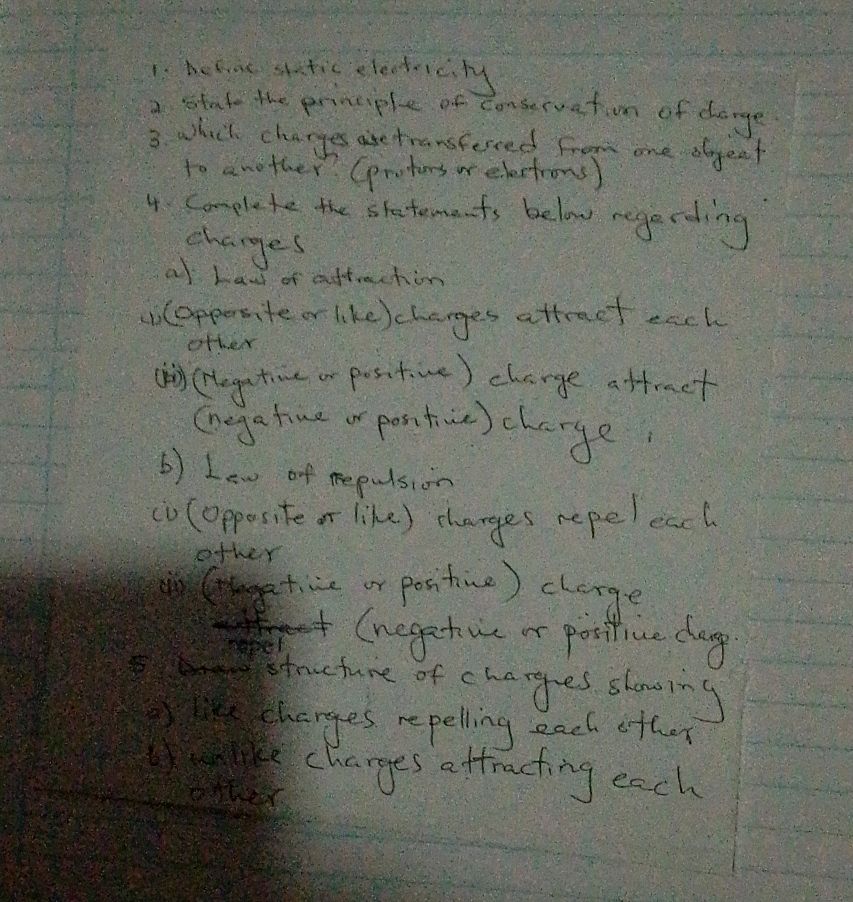 1. Define static electricity
2. State the principle of conservation of charge.
3. which charges are transferred from one object
to another? (protons or electrons)
4. Complete the statements below regarding
charges
a) Law of attraction
(i) (Opposite or like) charges attract each
other
(ii) (Negative or positive) charge attract
(negative or positive) charge.
b) Law of repulsion
(i) (Opposite or like) charges repel each
other
(ii) (Negative or positive) charge
repel (negative or positive charg.
5 structure of charges showing
a) like charges repelling each other
b) unlike charges attracting each
other